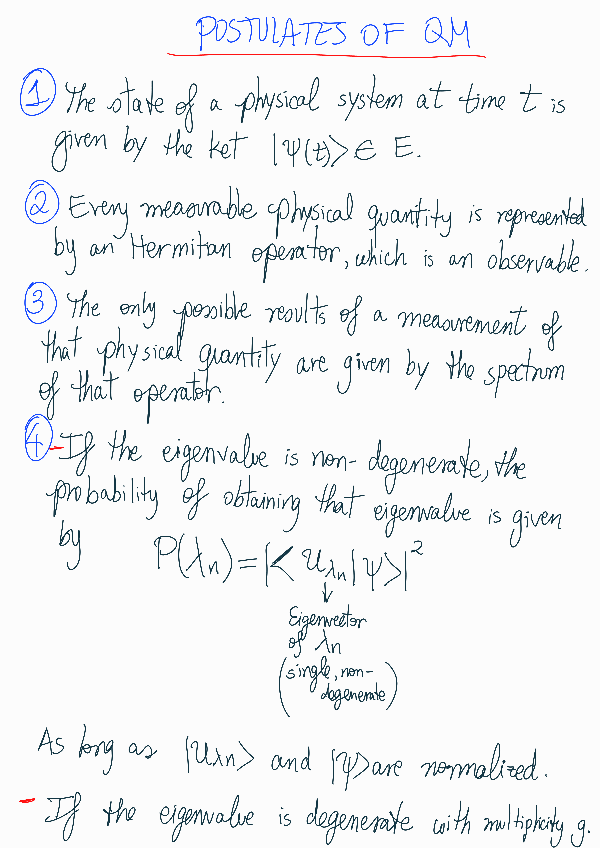 POSTULATES OF QM
① The state of a physical system at time t is
given by the ket |Ψ(t)> ∈ E.
② Every measurable physical quantity is represented
by an Hermitian operator, which is an observable.
③ The only possible results of a measurement of
that physical quantity are given by the spectrum
of that operator.
④ - If the eigenvalue is non-degenerate, the
probability of obtaining that eigenvalue is given
by P(λn) = |< uλn |ψ>|²
↓
Eigenvector
of λn
(single, non-
degenerate)
As long as |uλn> and |ψ> are normalized.
- If the eigenvalue is degenerate with multiplicity g.